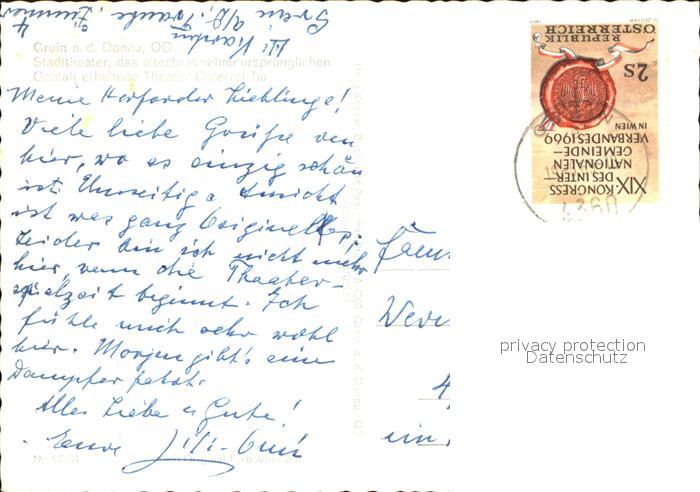 Grein a. d. Donau, OÖ.
Stadttheater, das älteste in seiner ursprünglichen
Gestalt erhaltene Theater Österreichs
Meine Herforder Lieblinge!
Viele liebe Grüße von
hier, wo es einzig schön
ist. Umseitige Ansicht
ist was ganz Originelles!
Leider bin ich nicht mehr
hier, wenn die Theater-
spielzeit beginnt. Ich
fühle mich sehr wohl
hier. Morgen gibt's eine
Dampferfahrt.
Alles Liebe u Gute!
Eure
REPUBLIK
ÖSTERREICH
2S
XIX. KONGRESS
DES INTER-
NATIONALEN
GEMEINDE-
VERBANDES 1969
IN WIEN
4360
privacy protection
Datenschutz